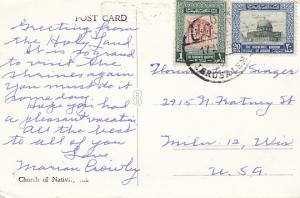 POST CARD
Greetings from
the Holy Land.
It is so good
to visit the
shrines again
you must do it
some day.
Hope you had
a pleasant vacation
All the best
to all of you
Love,
Marian Crowley
Church of Nativity,
1
20
THE HASHEMITE KINGDOM
OF JORDAN
JERUSALEM
Singer
2915 N
Milw. 12, Wis
U.S.A